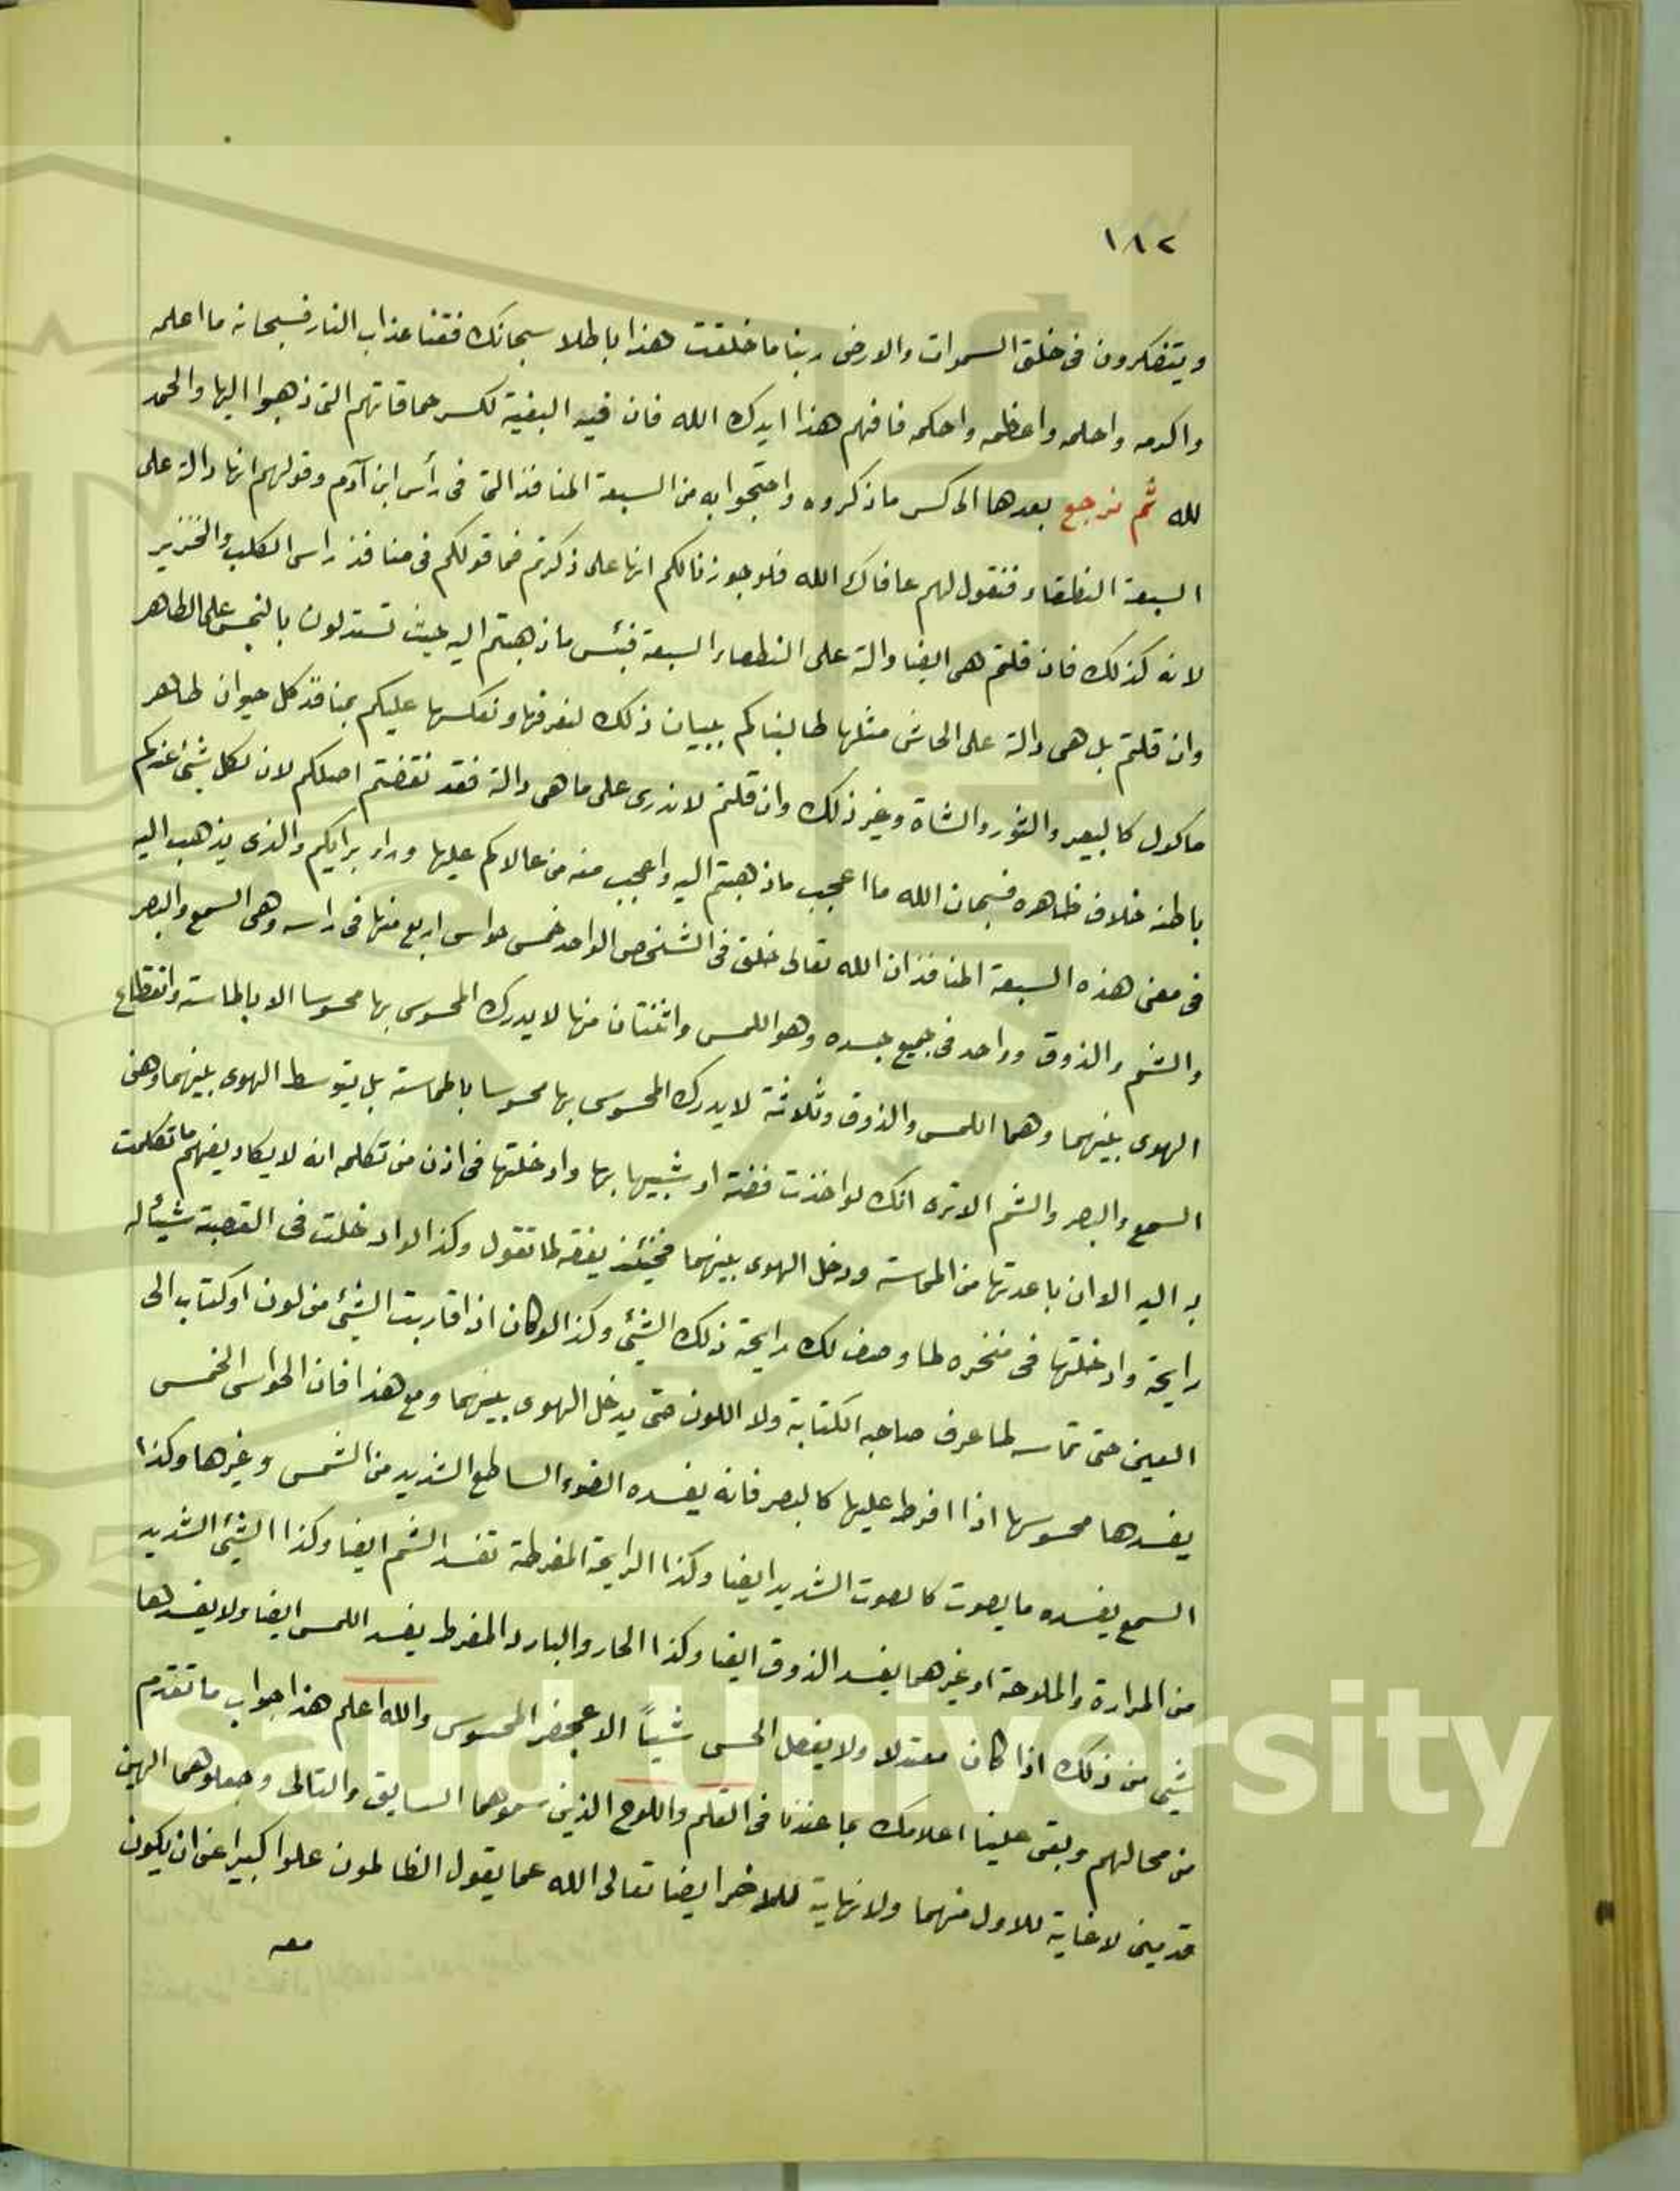 ١٨٢
ويتفكرون فى خلق السموات والارض ربنا ما خلقت هذا باطلا سبحانك فقنا عذاب النار فسبحانه ما اعلمه
واكرمه واحلمه واعظمه واحكمه فافهم هذا ايدك الله فان فيه البغية لكسر حماقاتهم التى ذهبوا اليها والحمد
لله ثم نرجع بعدها الى كسر ما ذكروه واحتجوا به من السبعة المنافذ التى فى رأس ابن آدم وقولهم انها دالة على
السبعة النطقاء فنقول لهم عافاك الله فلو جوزنا لكم انها على ذكرتم فما قولكم فى منافذ راس الكلب والخنزير
لانه كذلك فان قلتم هى ايضا دالة على النطقاء السبعة فبئس ما ذهبتم اليه حيث تستدلون بالنجس على الطاهر
وان قلتم بل هى دالة على الحاش مثلها طالبناكم ببيان ذلك لنعرفها ونعكسها عليكم بمنافذ كل حيوان طاهر
ماكول كالبعير والثور والشاة وغير ذلك وان قلتم لا ندرى على ما هى دالة فقد نقضتم اصلكم لان لكل شئ عندكم
باطنه خلاف ظاهره فسبحان الله ما اعجب ما ذهبتم اليه واعجب منه من عالاكم عليها ورام برايكم والذى يذهب اليه
فى معنى هذه السبعة المنافذ ان الله تعالى خلق فى الشخص الواحد خمس حواس اربع منها فى راسه وهى السمع والبصر
والشم والذوق وواحد فى جميع جسده وهو اللمس واثنتان منها لا يدرك المحسوس بها محسوسا الا بالماسة وانقطاع
الهوى بينهما وهما اللمس والذوق وثلاثة لا يدرك المحسوس بها محسوسا بالمماسة بل يتوسط الهوى بينهما وهى
السمع والبصر والشم الا ترى انك لو اخذت فضة او شبيها بها وادخلتها فى اذن من تكلمه انه لا يكاد يفهم ما تكلمت
به اليه الا وان باعدتها من المماسة ودخل الهوى بينهما فحينئذ يفقه لما تقول وكذا لو ادخلت فى القصبة شيئا له
رايحة وادخلتها فى منخره لما وصف لك رايحة ذلك الشئ وكذا لو كان اذا قاربت الشئ من لون او كتاب الى
العين حتى تماسه لما عرف صاحبه الكتابة ولا اللون حتى يدخل الهوى بينهما ومع هذا فان الحواس الخمس
يفسدها محسوسها اذا افرط عليها كالبصر فانه يفسده الضوء الساطع الشديد من الشمس وغيرها وكذا
السمع يفسده ما يصوت كالصوت الشديد ايضا وكذا الرايحة المفرطة تفسد الشم ايضا وكذا الشئ الشديد
من المرارة والملوحة او غيرهما يفسد الذوق ايضا وكذا الحار والبارد المفرط يفسد اللمس ايضا ولا يفسدها
شئ من ذلك اذا كان معتدلا ولا يفعل الحس شيئاً الا بمحضر المحسوس والله اعلم هذا جواب ما تقدم
من محالهم وبقى علينا اعلامك بما عندنا فى القلم واللوح الذين سموهما السابق والتالى وجعلوهما الهين
قديمين لا غاية للاول منهما ولا نهاية للاخر ايضا تعالى الله عما يقول الظالمون علوا كبيرا عن ان يكون
معه